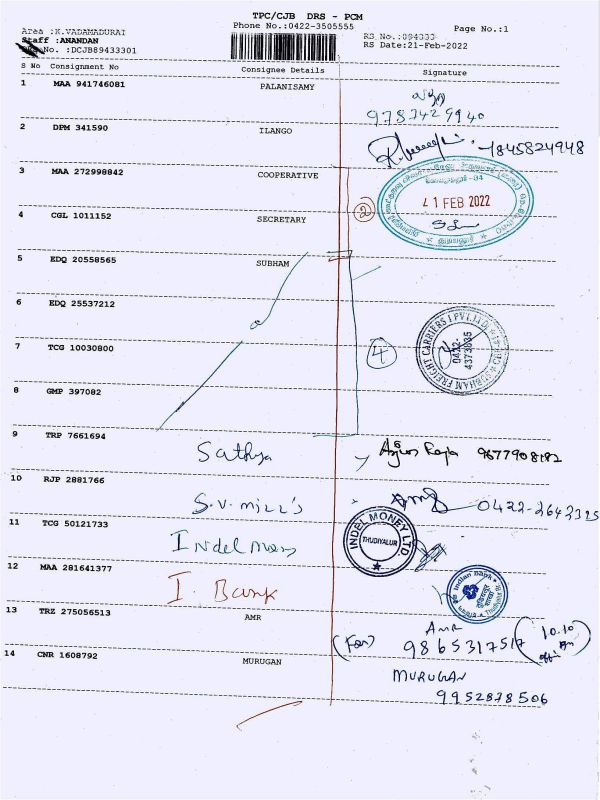 TPC/CJB DRS - PCM
Area :K.VADAMADURAI
Phone No.:0422-3505555
Page No.:1
Staff :ANANDAN
RS No.:894333
No. :DCJB89433301
RS Date:21-Feb-2022
S No Consignment No Consignee Details Signature
1 MAA 941746081 PALANISAMY
9787429940
2 DPM 341590 ILANGO
9845824948
3 MAA 272998842 COOPERATIVE
21 FEB 2022
2
4 CGL 1011152 SECRETARY
5 EDQ 20558565 SUBHAM
6 EDQ 25537212
7 TCG 10030800
4
SUBHAM FREIGHT CARRIERS I PVT.LTD.
0422-
4373835
8 GMP 397082
9 TRP 7661694 Sathya Arjun Raja 9677908182
10 RJP 2881766 S.V. mill's 0422-2642315
11 TCG 50121733 Indel Money
INDEL MONEY LTD
THUDIYALUR
12 MAA 281641377 I. Bank
Indian Bank
13 TRZ 275056513 AMR
AMR
(For) 9865317517 (10.10
14 CNR 1608792 MURUGAN
MURUGAN
9952878506